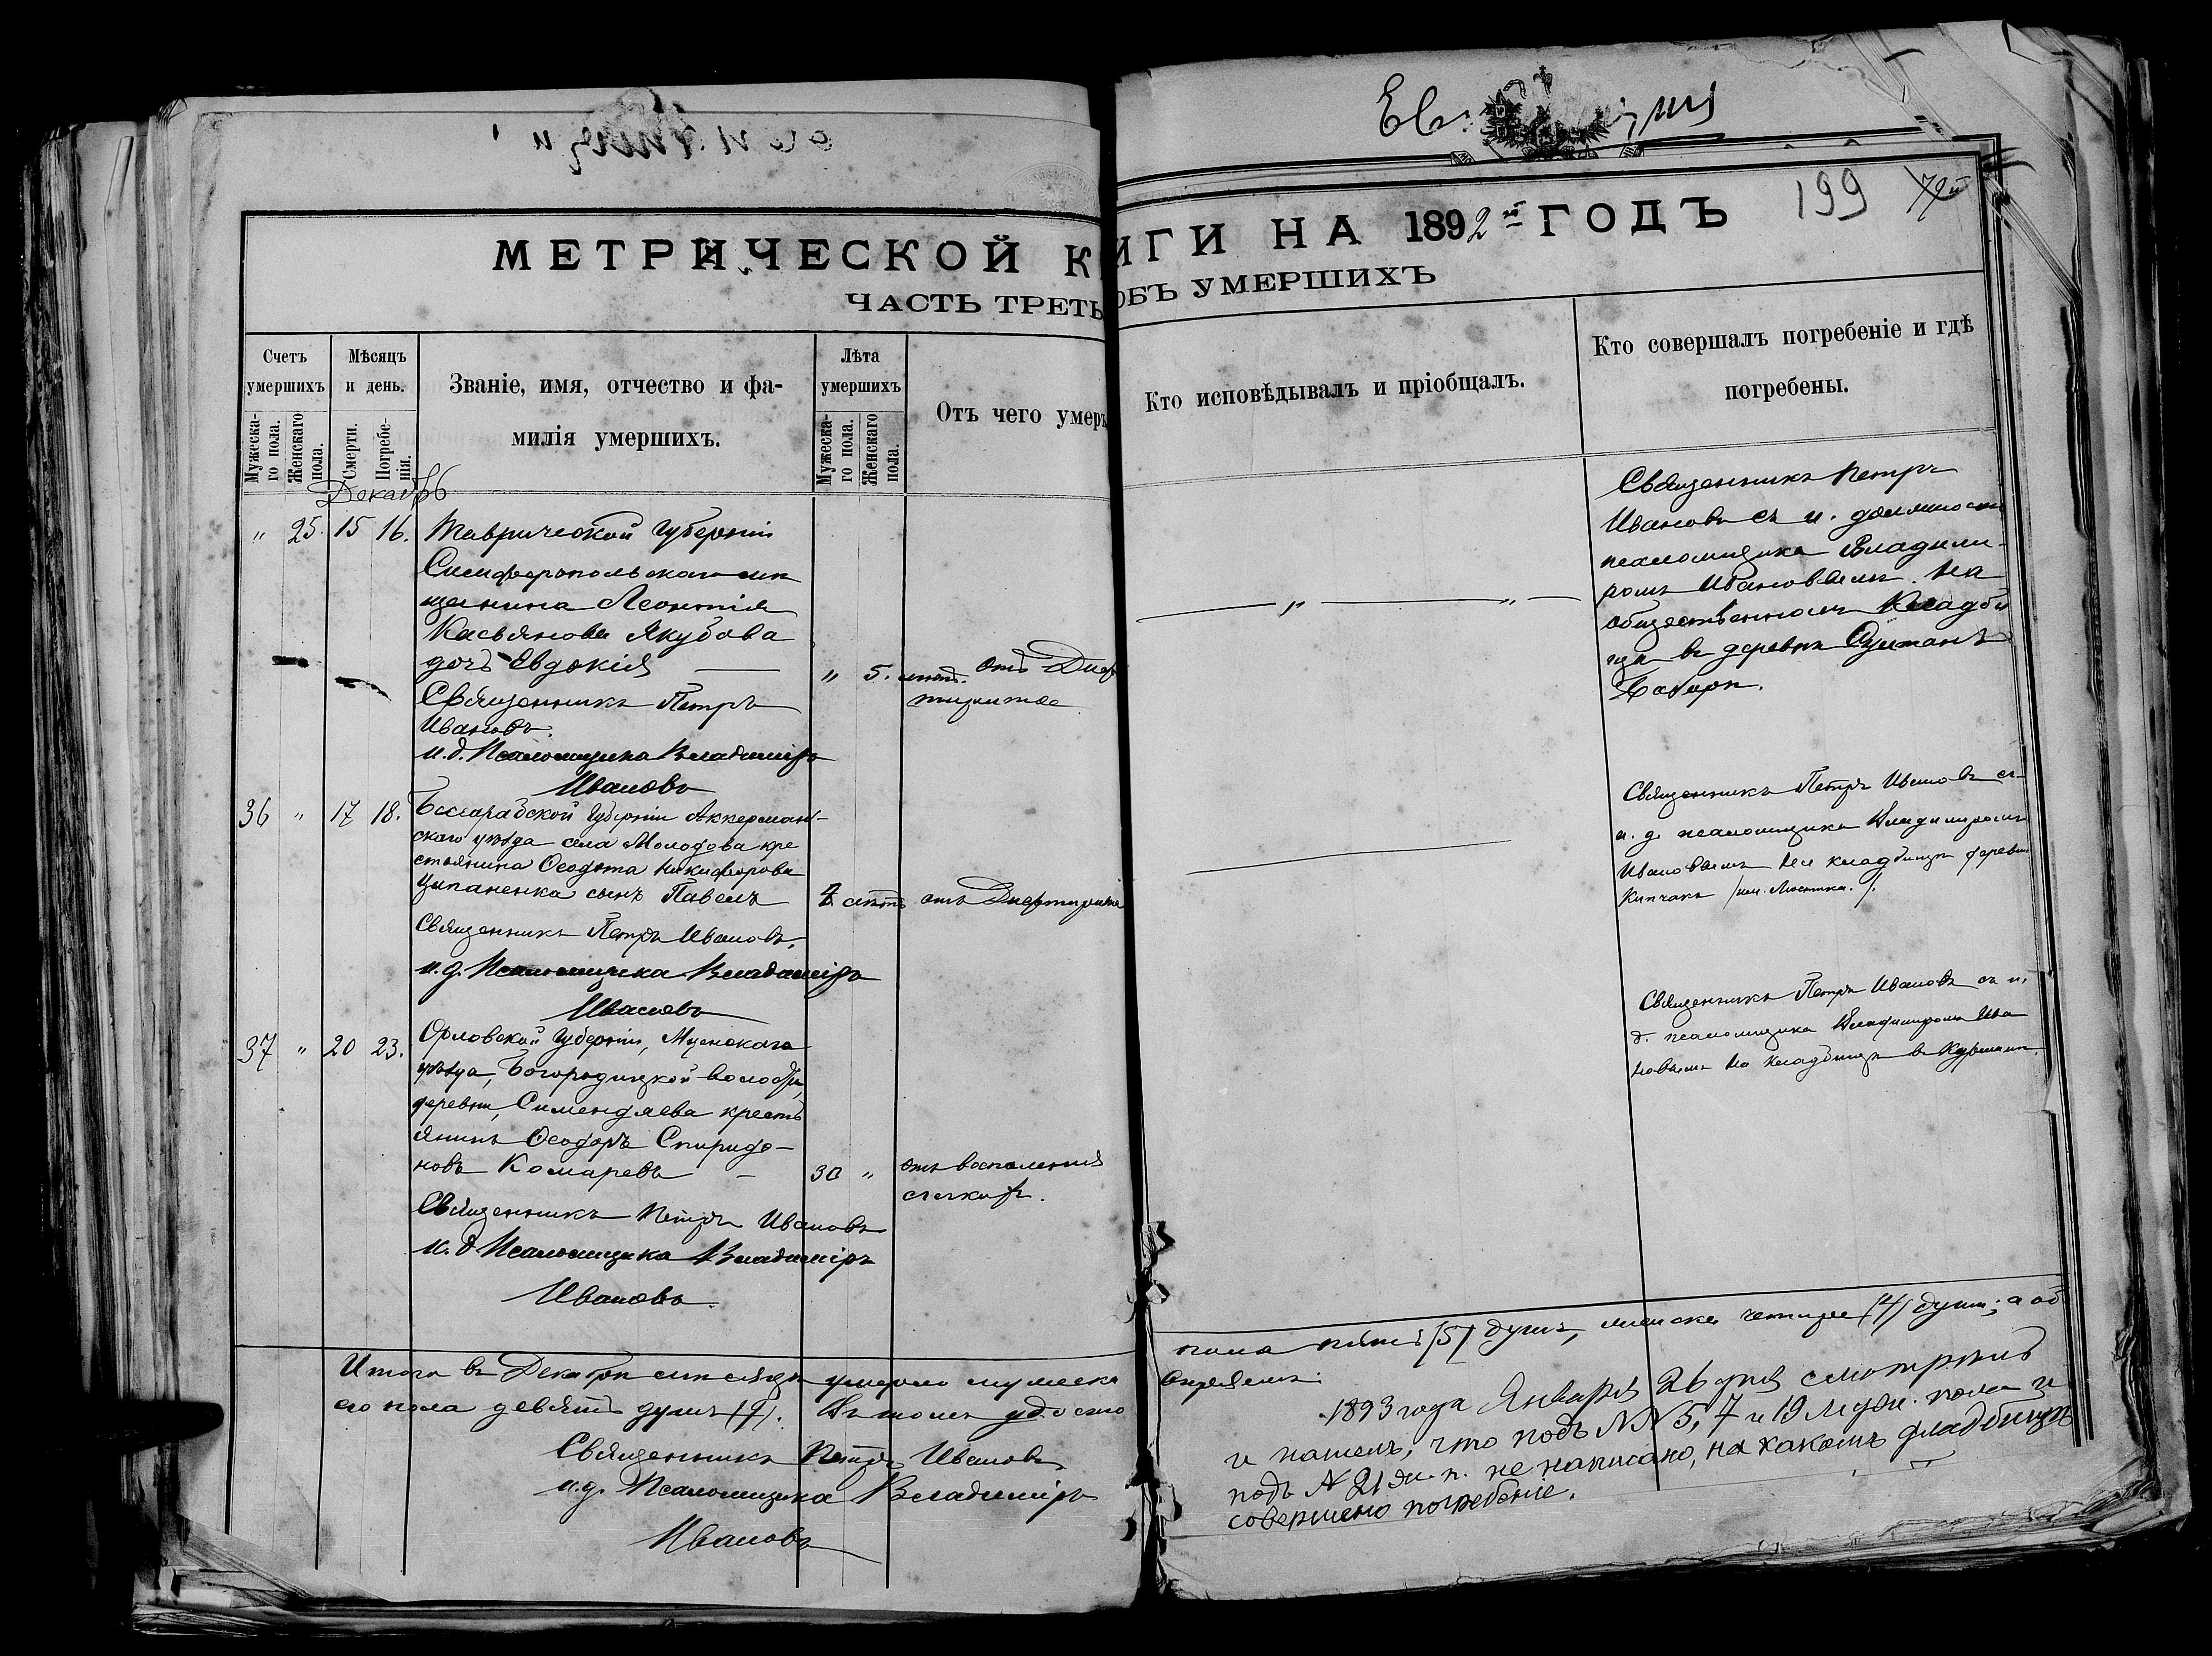 199
МЕТРИЧЕСКОЙ К
ИГИ НА 1892й ГОДЪ
ЧАСТЬ ТРЕТЬ
ОБЪ УМЕРШИХЪ
Счетъ умершихъ
Мужеска-го пола.
Женскаго пола.
Мѣсяцъ и день.
Смерти.
Погребе-нія.
Званіе, имя, отчество и фа-
милія умершихъ.
Лѣта умершихъ
Мужеска-го пола.
Женскаго пола.
Отъ чего умеръ
Кто исповѣдывалъ и пріобщалъ.
Кто совершалъ погребеніе и гдѣ
погребены.
Декабрь
" 25. 15 16. Таврической Губерніи
Симферопольскаго мѣ
щанина Леонтія
Касьянова Якубова
дочь Евдокія — " 5. лѣтъ. отъ Диф
терита
Священникъ Петръ
Ивановъ.
и. д. Псаломщика Владиміръ
Ивановъ
— " — " —
Священникъ Петръ
Ивановъ съ и. должност
псаломщика Владими-
ромъ Ивановымъ. На
общественномъ Кладби
щѣ въ деревнѣ
36 " 17 18. Бессарабской Губерніи Аккерман-
скаго уѣзда села Молодова кре
стьянина Ѳеодота Никифорова
Цыпаненка сынъ Павелъ лѣтъ отъ Дифтерита
Священникъ Петръ Ивановъ.
и. д. Псаломщика Владиміръ
Ивановъ
Священникъ Петръ Ивановъ съ
и. д. псаломщика Владимиромъ
Ивановымъ На кладбищѣ деревни
Кипчакъ
37 " 20 23. Орловской Губерніи, Мценскаго
уѣзда, Богородицкой волости,
деревни, Симендяева кресть
янинъ Ѳеодоръ Спиридо-
новъ Комаревъ — 30 " отъ воспаленія
Священникъ Петръ Ивановъ
и. д. Псаломщика Владиміръ
Ивановъ.
Священникъ Петръ Ивановъ съ и.
д. псаломщика Владимиромъ Ива
новымъ На кладбищѣ въ
Итого въ Декабрѣ мѣсяцѣ умерло мужеска
го пола девять душъ (9). Въ томъ удосто
Священникъ Петръ Ивановъ
и. д. Псаломщика Владиміръ
Ивановъ
пола пять (5) душъ, женска четыре (4) душъ; а об
1893 года Января 26 дня смотрѣлъ
и нашелъ, что подъ №№ 5, 7 и 19 муж. пола и
подъ № 21 ж. п. не написано, на какомъ кладбищѣ
совершено погребеніе.